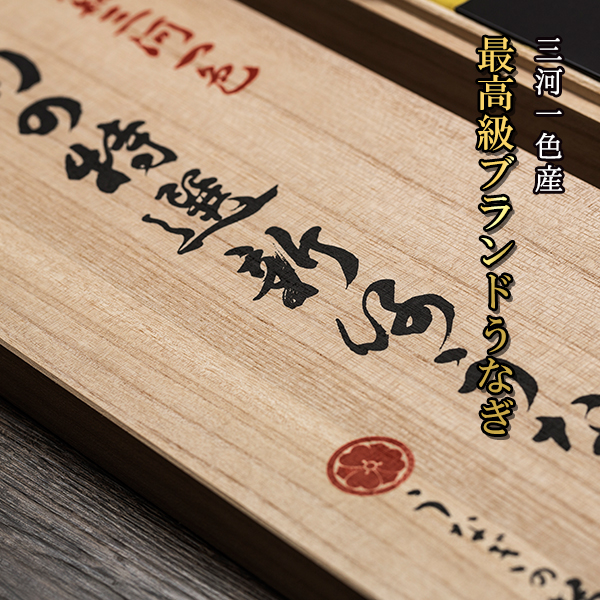 三河一色産
最高級ブランドうなぎ
三河一色
の特選新仔うな
うなぎの